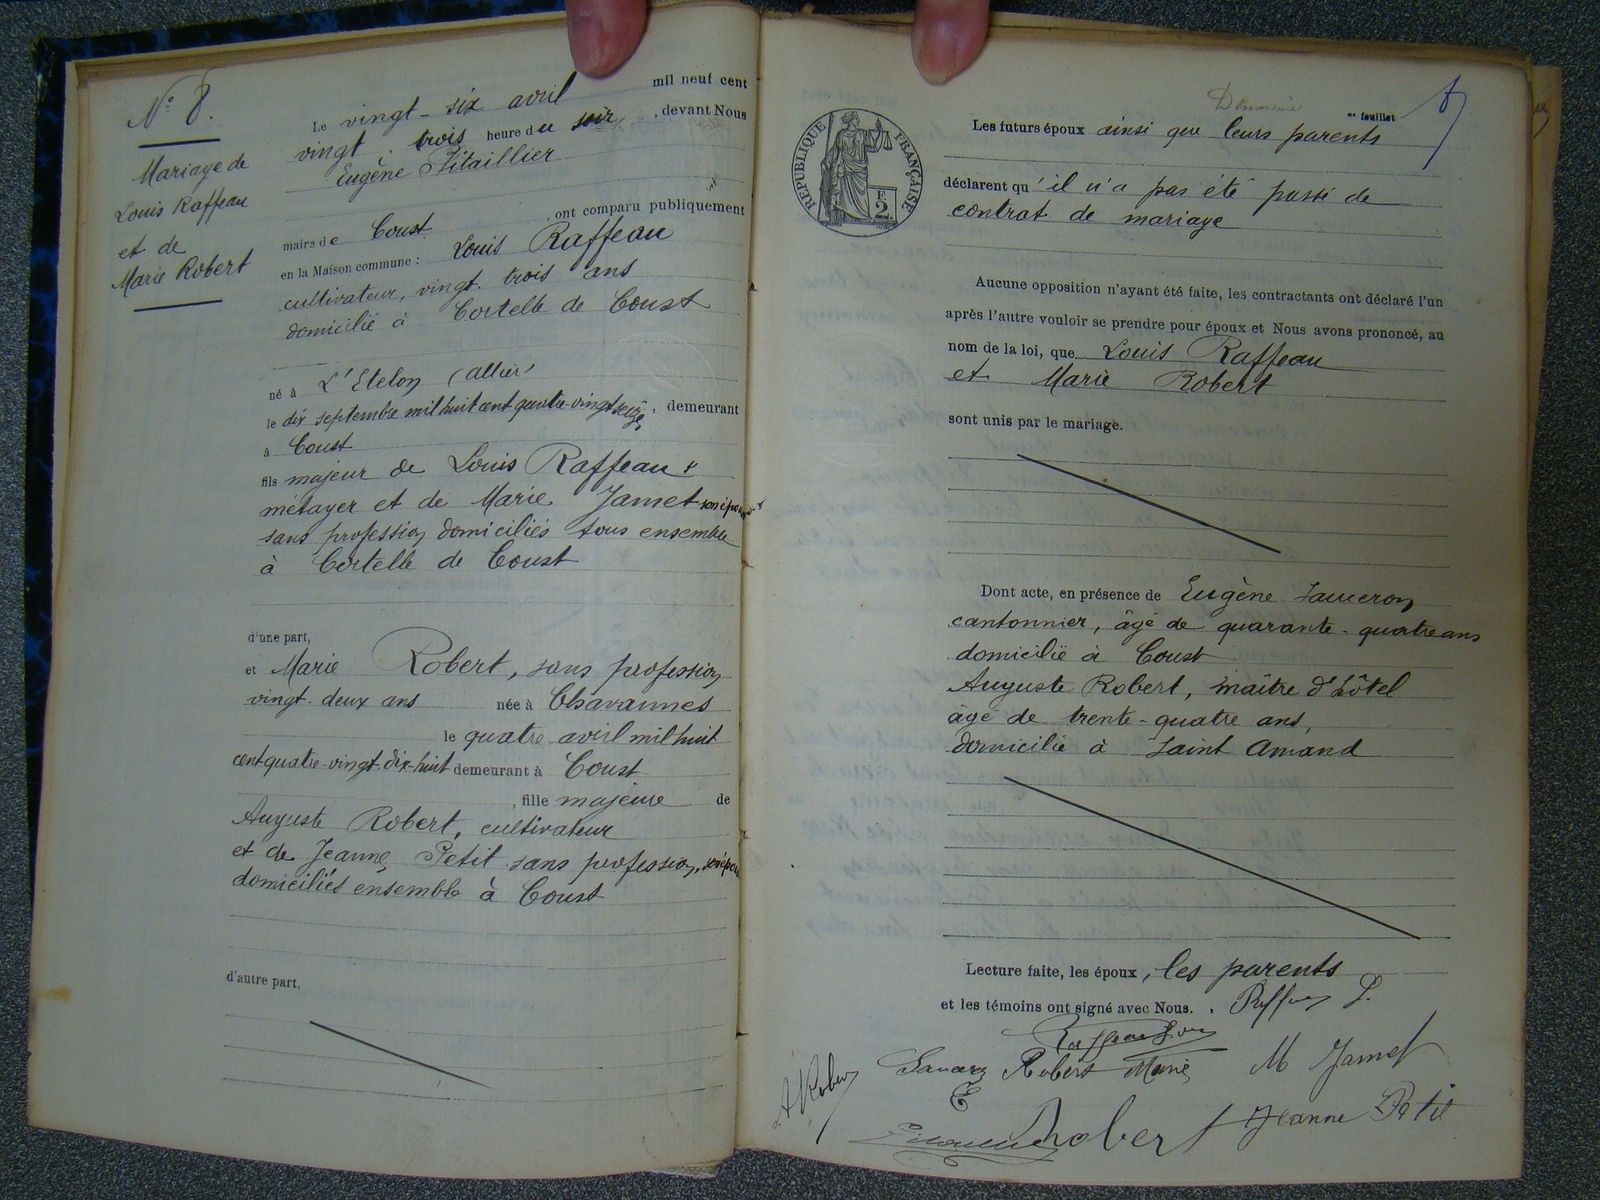 N° 8.
Mariage de
Louis Raffeau
et de
Marie Robert
Le vingt-six avril mil neuf cent
vingt. trois heure du soir, devant Nous
Eugène
maire de Coust, ont comparu publiquement
en la Maison commune : Louis Raffeau
cultivateur, vingt. trois ans
domicilié à Cortelle de Coust
né à L'Etelon (allier)
le dix septembre mil huit cent quatre-vingt seize, demeurant
à Coust
fils majeur de Louis Raffeau
métayer et de Marie Jamet son épouse
sans profession domiciliés tous ensemble
à Cortelle de Coust
d'une part,
et Marie Robert, sans profession
vingt. deux ans née à Chavannes
le quatre avril mil huit
cent quatre-vingt-dix-huit demeurant à Coust
, fille majeure de
Auguste Robert, cultivateur
et de Jeanne Petit sans profession, son épouse
domiciliés ensemble à Coust
d'autre part.
feuillet
RÉPUBLIQUE FRANÇAISE
2
Les futurs époux ainsi que leurs parents
déclarent qu'il n'a pas été passé de
contrat de mariage
Aucune opposition n'ayant été faite, les contractants ont déclaré l'un
après l'autre vouloir se prendre pour époux et Nous avons prononcé, au
nom de la loi, que Louis Raffeau
et Marie Robert
sont unis par le mariage.
Dont acte, en présence de Eugène
cantonnier, âgé de quarante-quatre ans
domicilié à Coust
Auguste Robert, maître d'hôtel
âgé de trente-quatre ans,
domicilié à Saint Amand
Lecture faite, les époux, les parents
et les témoins ont signé avec Nous.
Robert Marie M Jamet
E
A Robert
Robert Jeanne Petit